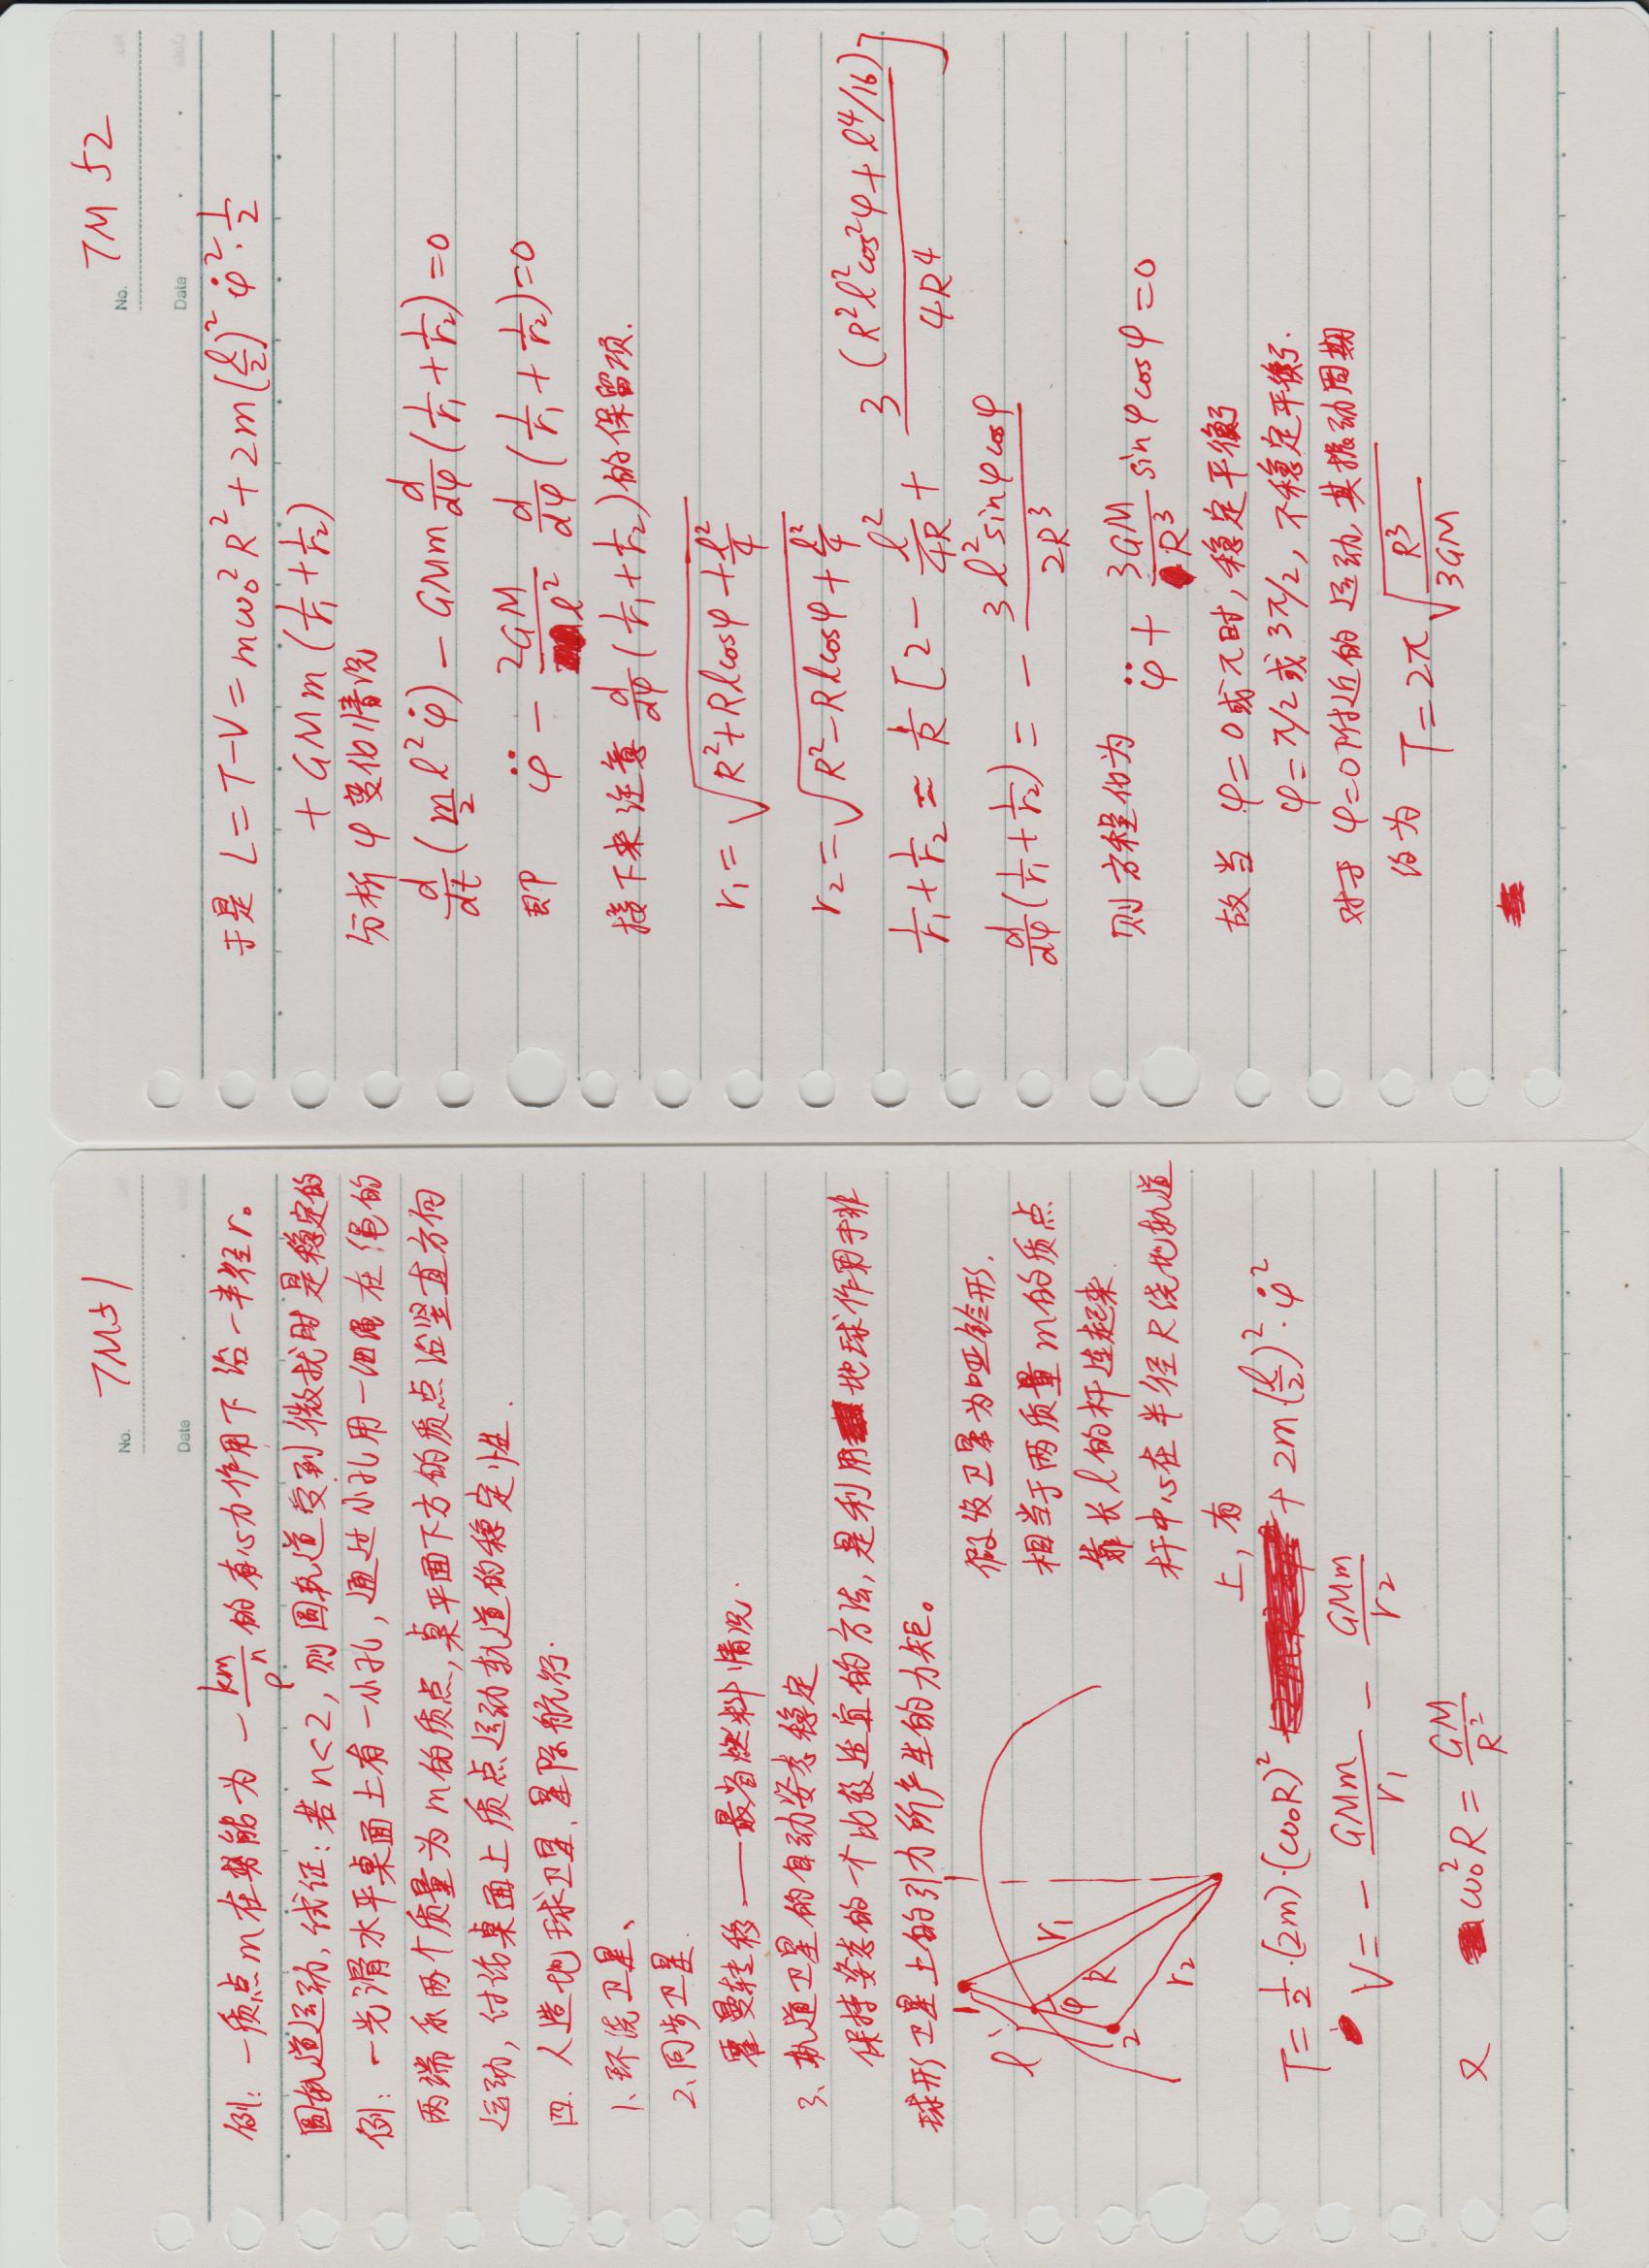 No. TM51
Date
例: 一质点m在势能为 -km/ρ^n 的有心力作用下沿一半径r。
圆轨道运动, 试证: 若n<2, 则圆轨道受到微扰时是稳定的
例: 一光滑水平桌面上有一小孔, 通过小孔用一细绳在绳的
两端系两个质量为m的质点, 桌平面下方的质点沿竖直方向
运动, 讨论桌面上质点运动轨道的稳定性.
四. 人造地球卫星、星际航行.
1、环绕卫星、
2、同步卫星.
霍曼转移——最省燃料情况.
3、轨道卫星的自动姿态稳定
保持姿态的一个比较适宜的方法, 是利用地球作用于非
球形卫星上的引力所产生的力矩。
1
l
φ
R
r₁
2
r₂
假设卫星为哑铃形.
相当于两质量m的质点
靠长l的杆连起来.
杆中心在半径R绕地轨道
上, 有
T = 1/2·(2m)·(ω₀R)² + 2m(l/2)²·φ̇²
V = - GMm/r₁ - GMm/r₂
又 ω₀²R = GM/R²
No. TM 52
Date
于是 L = T-V = mω₀²R² + 2m(l/2)²φ̇²·1/2
+ GMm(1/r₁ + 1/r₂)
分析φ变化情况
d/dt(m/2 l²φ̇) - GMm d/dφ(1/r₁ + 1/r₂) = 0
即 φ̈ - 2GM/l² d/dφ(1/r₁ + 1/r₂) = 0
接下来注意 d/dφ(1/r₁ + 1/r₂)的保留项.
r₁ = √(R² + Rlcosφ + l²/4)
r₂ = √(R² - Rlcosφ + l²/4)
1/r₁ + 1/r₂ = 1/R [2 - l²/4R + 3(R²l²cos²φ + l⁴/16)/4R⁴]
d/dφ(1/r₁ + 1/r₂) = - 3l²sinφcosφ/2R³
则方程化为 φ̈ + 3GM/R³ sinφcosφ = 0
故当 φ=0或π时, 稳定平衡
φ=π/2或3π/2, 不稳定平衡.
对于φ=0附近的运动, 其振动周期
约为 T = 2π√(R³/3GM)